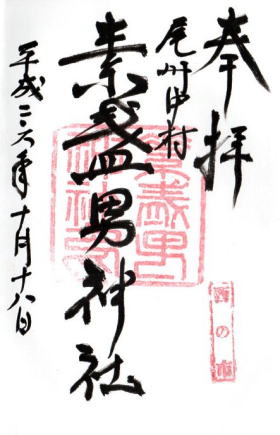 奉拝
尾州中村
素盞男神社
平成二六年十月十八日
酉の市